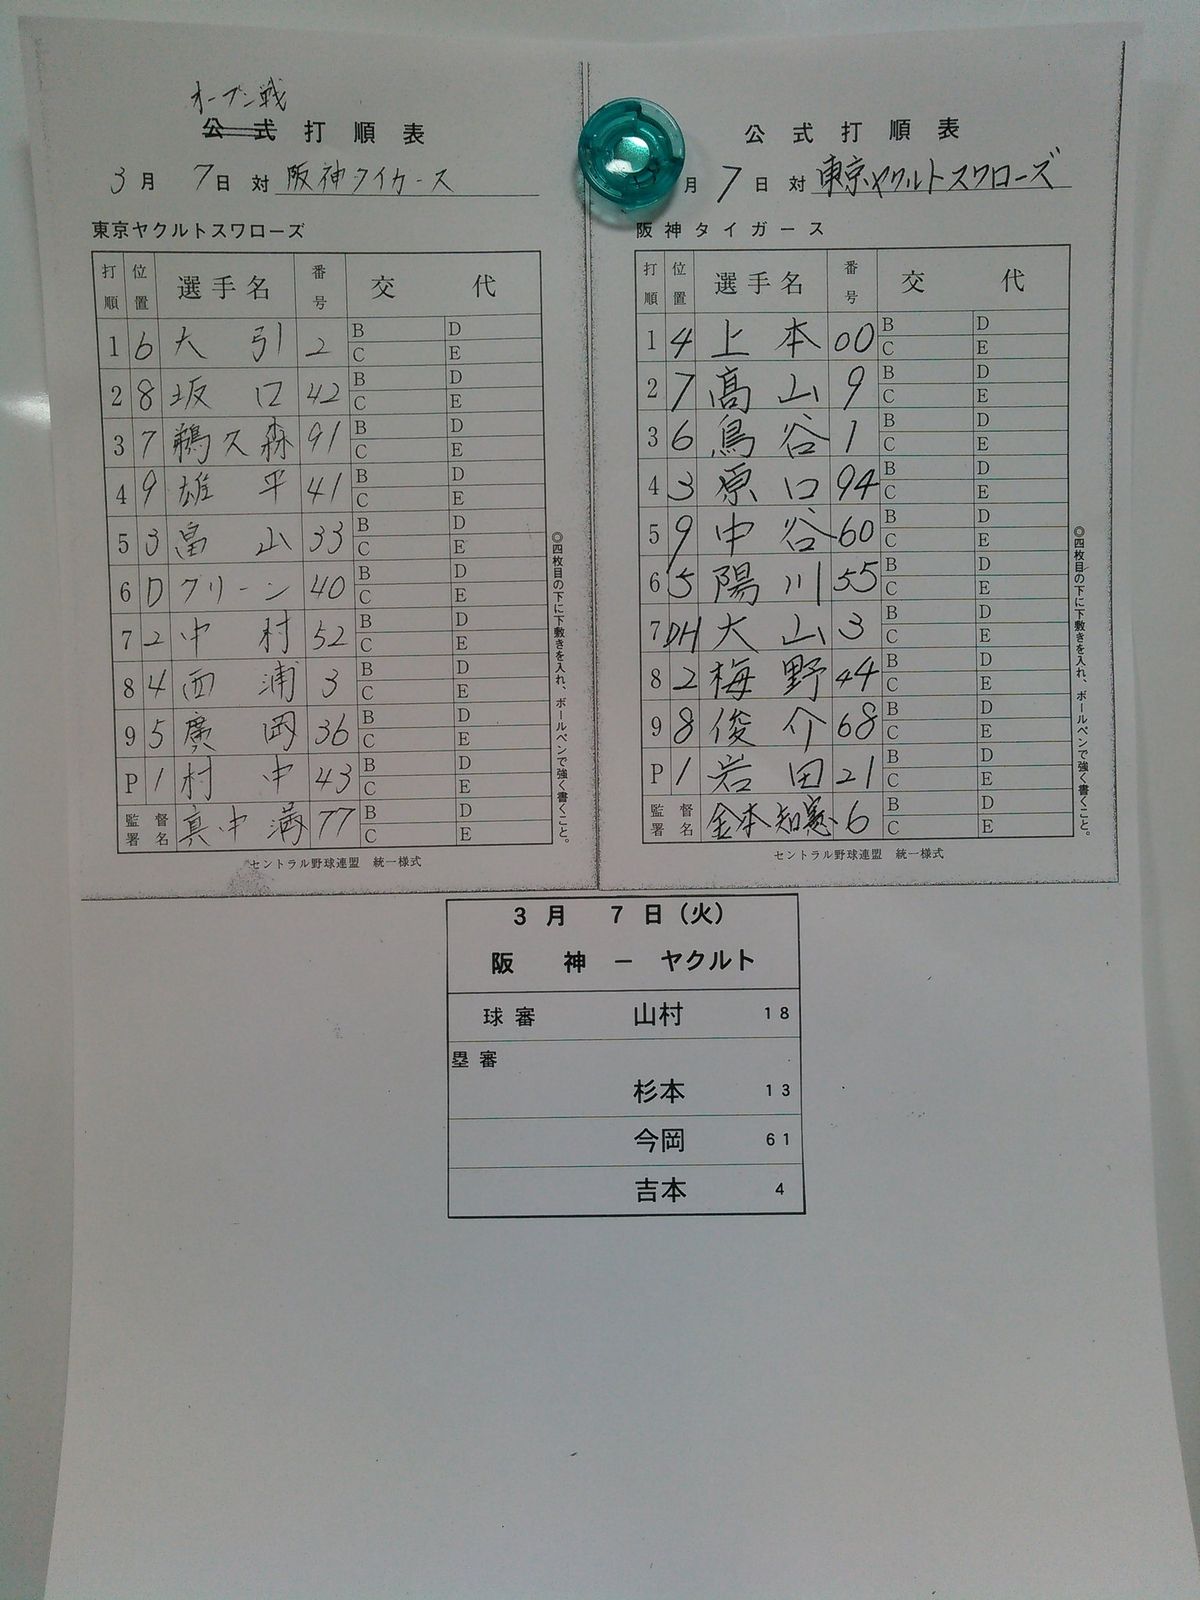 オープン戦
公式打順表
3月 7日 対 阪神タイガース
東京ヤクルトスワローズ
打順 位置 選手名 番号 交代
1 6 大引 2 B D C E
2 8 坂口 42 B D C E
3 7 鵜久森 91 B D C E
4 9 雄平 41 B D C E
5 3 畠山 33 B D C E
6 D グリーン 40 B D C E
7 2 中村 52 B D C E
8 4 西浦 3 B D C E
9 5 廣岡 36 B D C E
P 1 村中 43 B D C E
監督署名 真中満 77 B D C E
セントラル野球連盟 統一様式
◎四枚目の下に下敷きを入れ、ボールペンで強く書くこと。
公式打順表
月 7日 対 東京ヤクルトスワローズ
阪神タイガース
打順 位置 選手名 番号 交代
1 4 上本 00 B D C E
2 7 髙山 9 B D C E
3 6 鳥谷 1 B D C E
4 3 原口 94 B D C E
5 9 中谷 60 B D C E
6 5 陽川 55 B D C E
7 DH 大山 3 B D C E
8 2 梅野 44 B D C E
9 8 俊介 68 B D C E
P 1 岩田 21 B D C E
監督署名 金本知憲 6 B D C E
セントラル野球連盟 統一様式
◎四枚目の下に下敷きを入れ、ボールペンで強く書くこと。
3月 7日(火)
阪神－ヤクルト
球審 山村 18
塁審
杉本 13
今岡 61
吉本 4